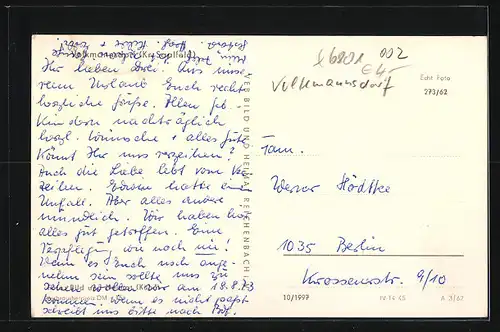 Volkmannsdorf (Kr. Saalfeld)
Ihr lieben Drei. Aus unse-
rem Urlaub Euch recht
herzliche Grüße. Allen Ge.
Kindern nachträglich
herzl. Wünsche + alles Gute
Könnt Ihr uns verzeihen?
Auch die Liebe lebt vom Ver-
zeihen. Edwin hatte einen
Unfall. Aber alles andere
mündlich. Wir haben hier
alles gut getroffen. Eine
Verpflegung, wie noch nie!
Wenn es Euch noch ange-
nehm sein sollte uns zu
sehen, wollen wir am 18.8.73
kommen. Wenn es nicht paßt
schreibt uns bitte nach
VEB BILD UND HEIMAT REICHENBACH I. V.
002
E4,-
Volkmannsdorf
Echt Foto
273/62
Fam.
Werner
1035 Berlin
Krossenerstr. 9/10
10/1997
IV-14-45
A 3/62